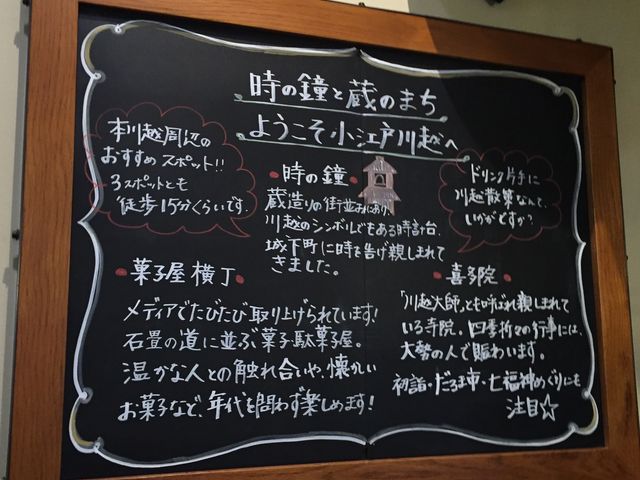 時の鐘と蔵のまち
ようこそ小江戸川越へ
本川越周辺の
おすすめスポット!!
3スポットとも
徒歩15分くらいです。
・時の鐘・
蔵造りの街並みにあり、
川越のシンボルでもある時計台。
城下町に時を告げ親しまれて
きました。
ドリンク片手に
川越散策なんて、
いかがですか?
・菓子屋横丁・
メディアでたびたび取り上げられています!
石畳の道に並ぶ菓子・駄菓子屋。
温かな人との触れ合いや、懐かしい
お菓子など、年代を問わず楽しめます!
・喜多院・
「川越大師」とも呼ばれ親しまれて
いる寺院。四季折々の行事には、
大勢の人で賑わいます。
初詣・だるま市・七福神めぐりにも
注目☆